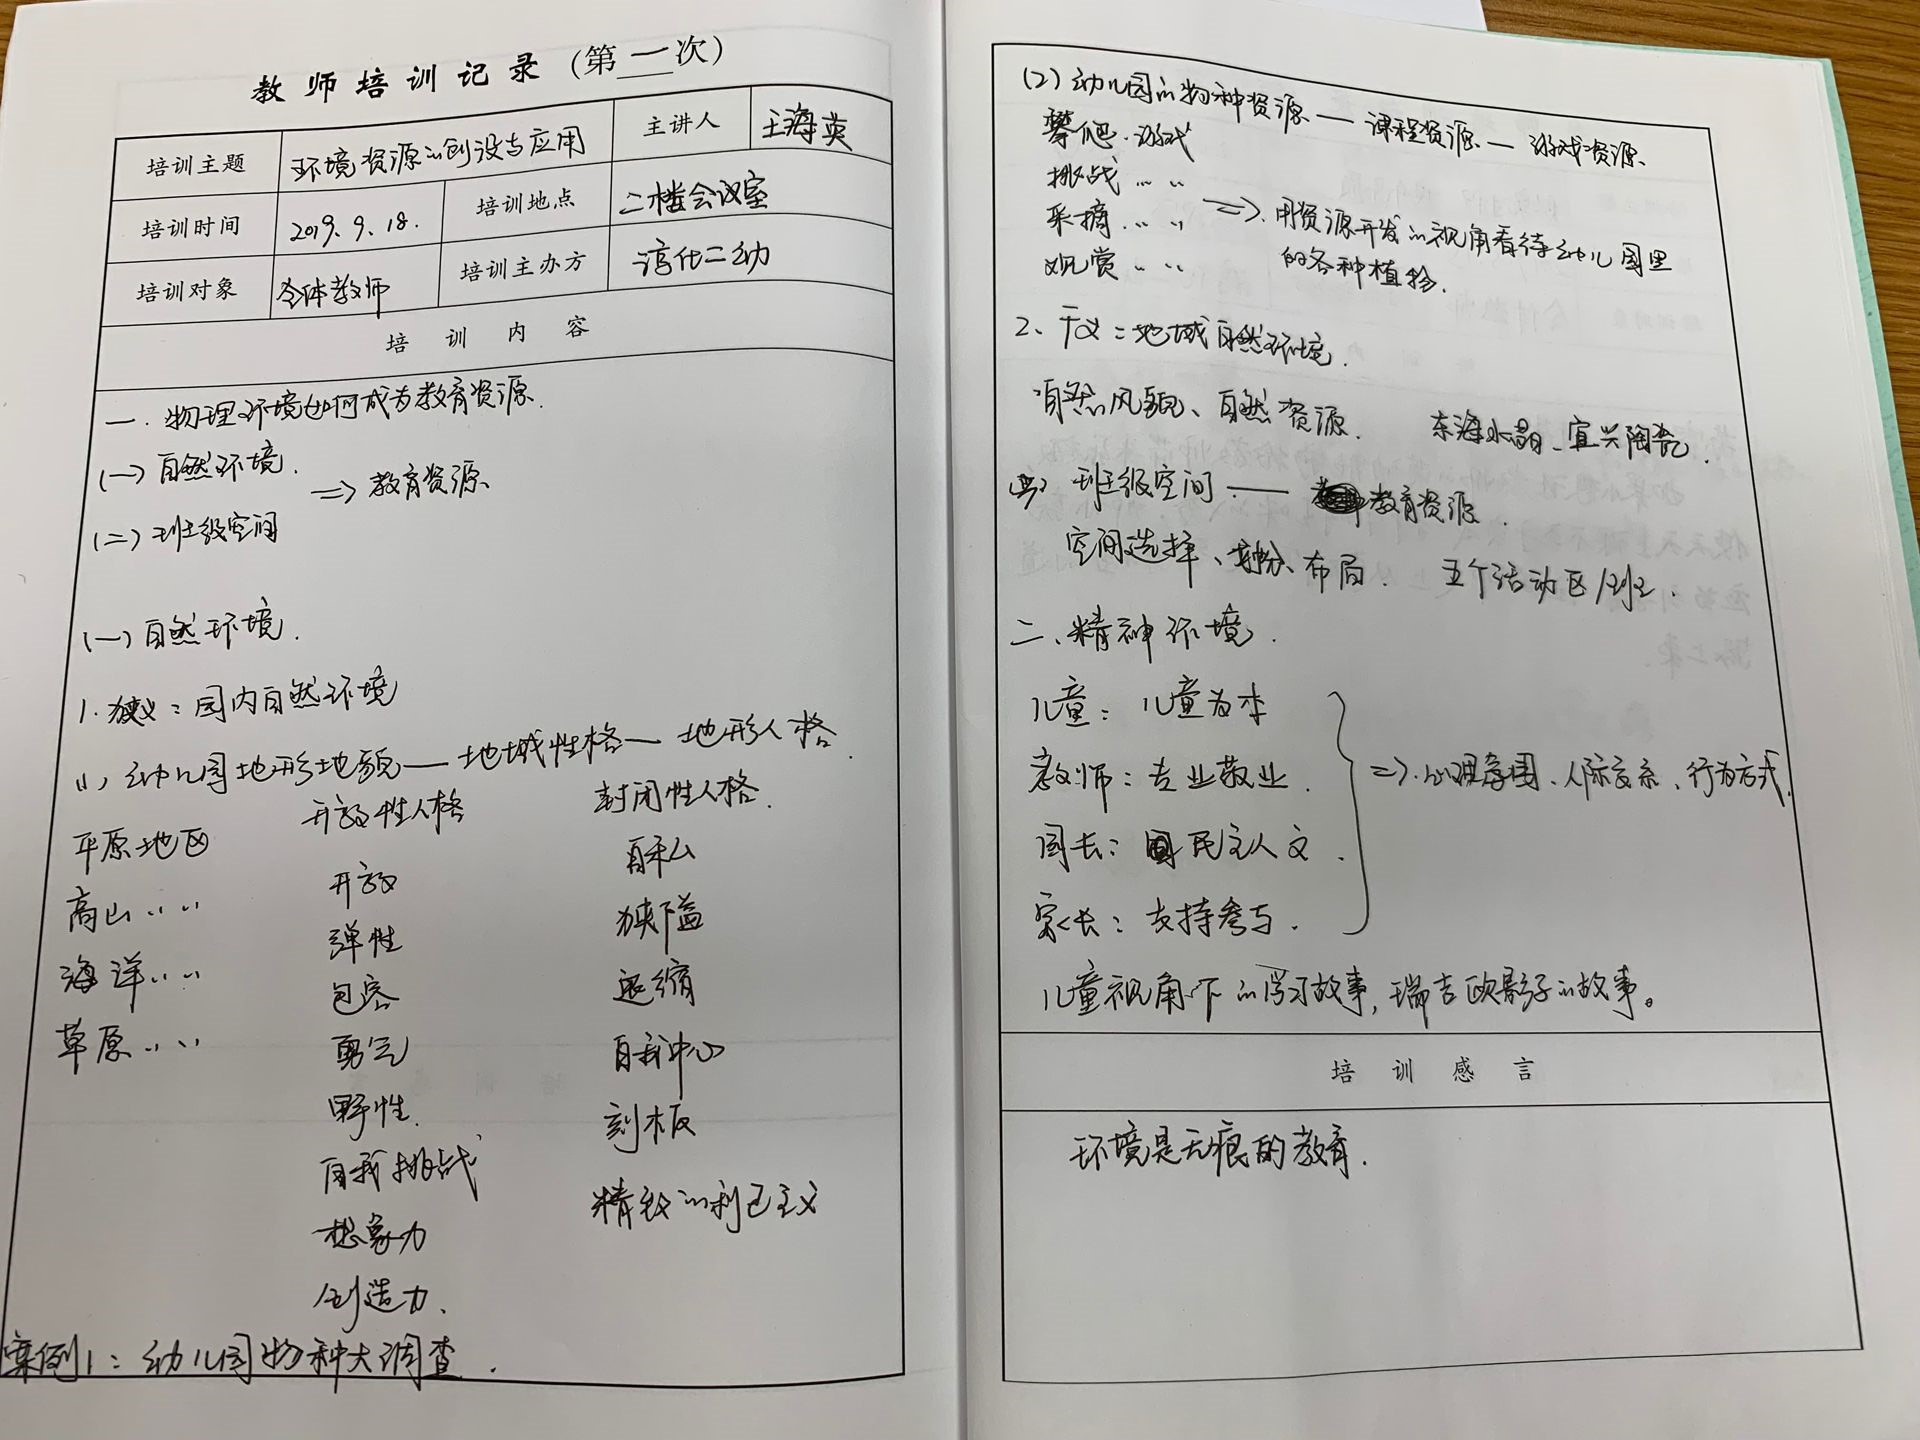 教师培训记录（第一次）
培训主题 环境资源的创设与应用 主讲人 王海英
培训时间 2019.9.18. 培训地点 二楼会议室
培训对象 全体教师 培训主办方 淳化二幼
培训内容
一.物理环境如何成为教育资源.
(一)自然环境.
⇒教育资源
(二)班级空间
(一)自然环境.
1.狭义：园内自然环境
(1)幼儿园地形地貌—地域性格—地形人格
开放性人格 封闭性人格.
平原地区 开放 自私
高山〃〃 弹性 狭隘
海洋〃〃 包容 退缩
草原〃〃 勇气 自我中心
野性. 刻板
自我挑战 精致的利己主义
想象力
创造力.
案例1：幼儿园物种大调查.
(2)幼儿园的物种资源—课程资源—游戏资源.
攀爬.游戏
挑战〃〃
采摘〃〃 ⇒.用资源开发的视角看待幼儿园里
观赏〃〃 的各种植物.
2、广义：地域自然环境.
自然风貌、自然资源. 东海水晶、宜兴陶瓷.
(二)班级空间——教育资源.
空间选择、划分、布局. 五个活动区/班.
二、精神环境.
儿童：儿童为本
教师：专业敬业.
⇒.心理氛围、人际关系、行为方式.
园长：民主人文.
家长：支持参与.
儿童视角下的学习故事,瑞吉欧影子的故事。
培训感言
环境是无痕的教育.